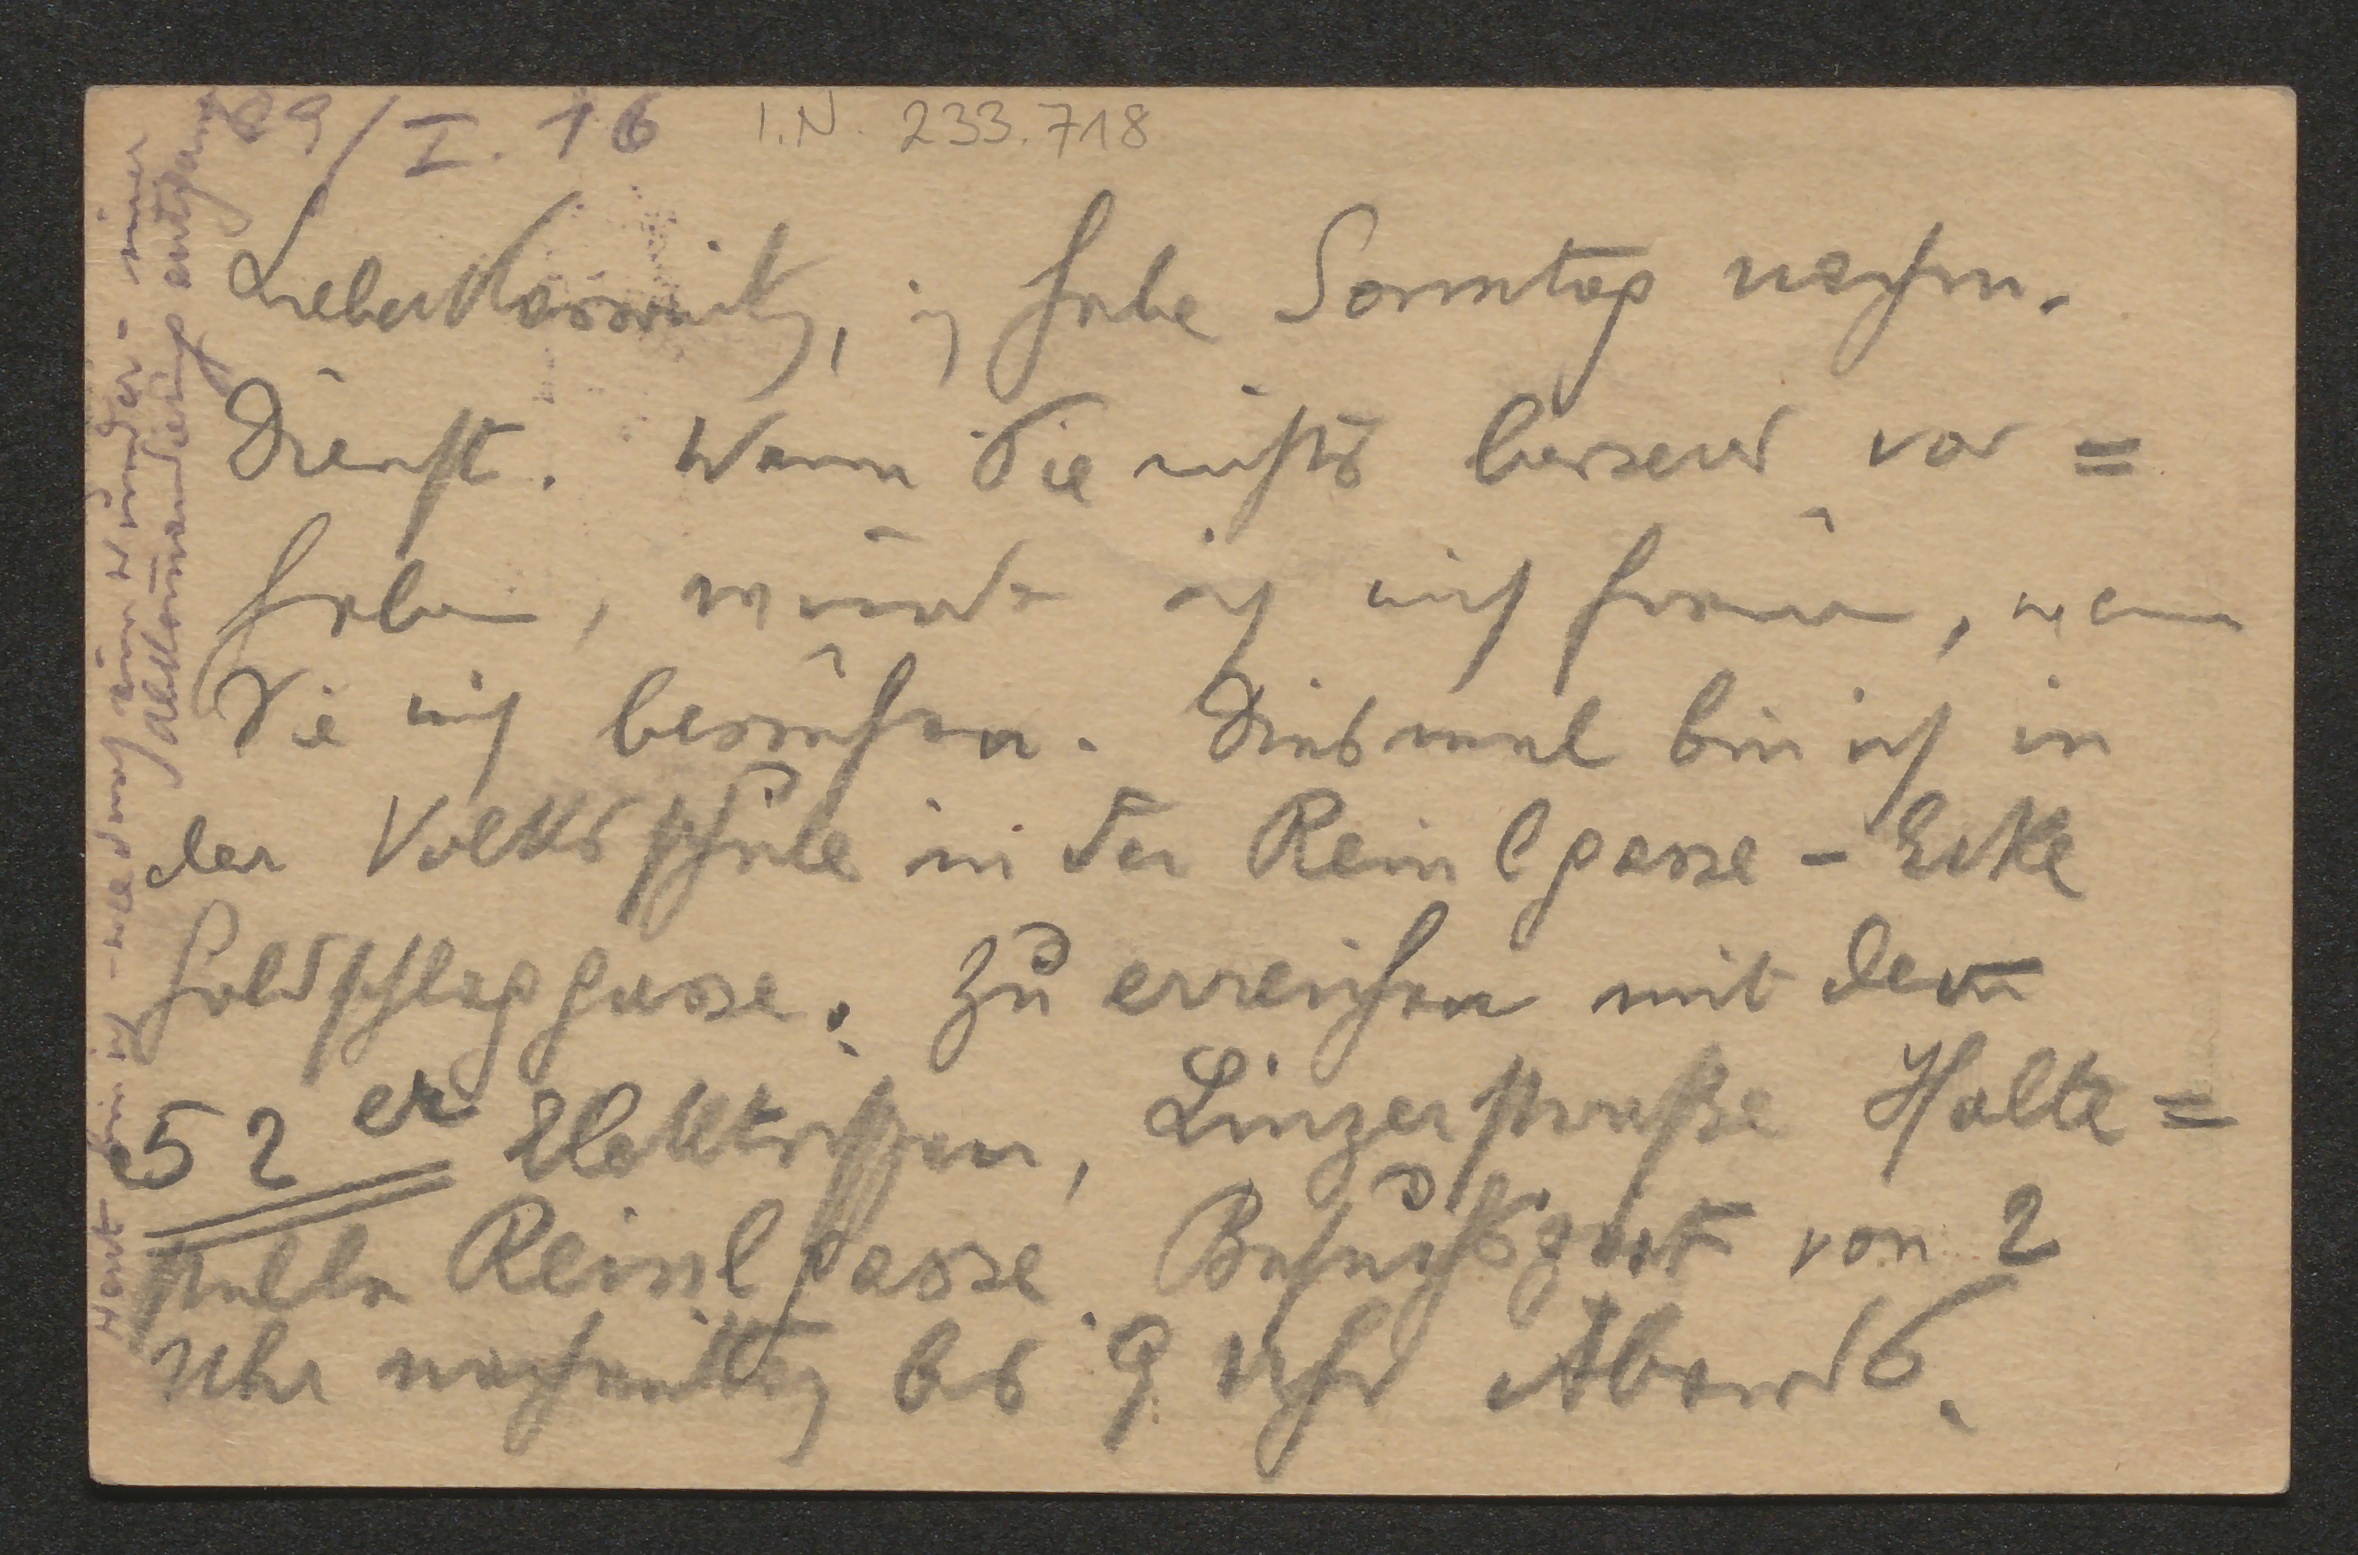 29/I. 16 I.N. 233.718
Lieber Kassowitz, ich habe Sonntag nachm.
Dienst. Wenn Sie nichts besseres vor=
haben, würde ich mich freuen, wenn
Sie mich besuchen. Diesmal bin ich in
der Volksschule in der Reinlgasse – Ecke
Goldschlaggasse. Zu erreichen mit dem
52er Elektrischen, Linzerstraße Halte=
stelle Reinlgasse. Besuchszeit von 2
Uhr nachmittag bis 9 Uhr Abends.
Heut bin ich wiedermal wie durch ein Wunder einer
Abkommandierung entgangen